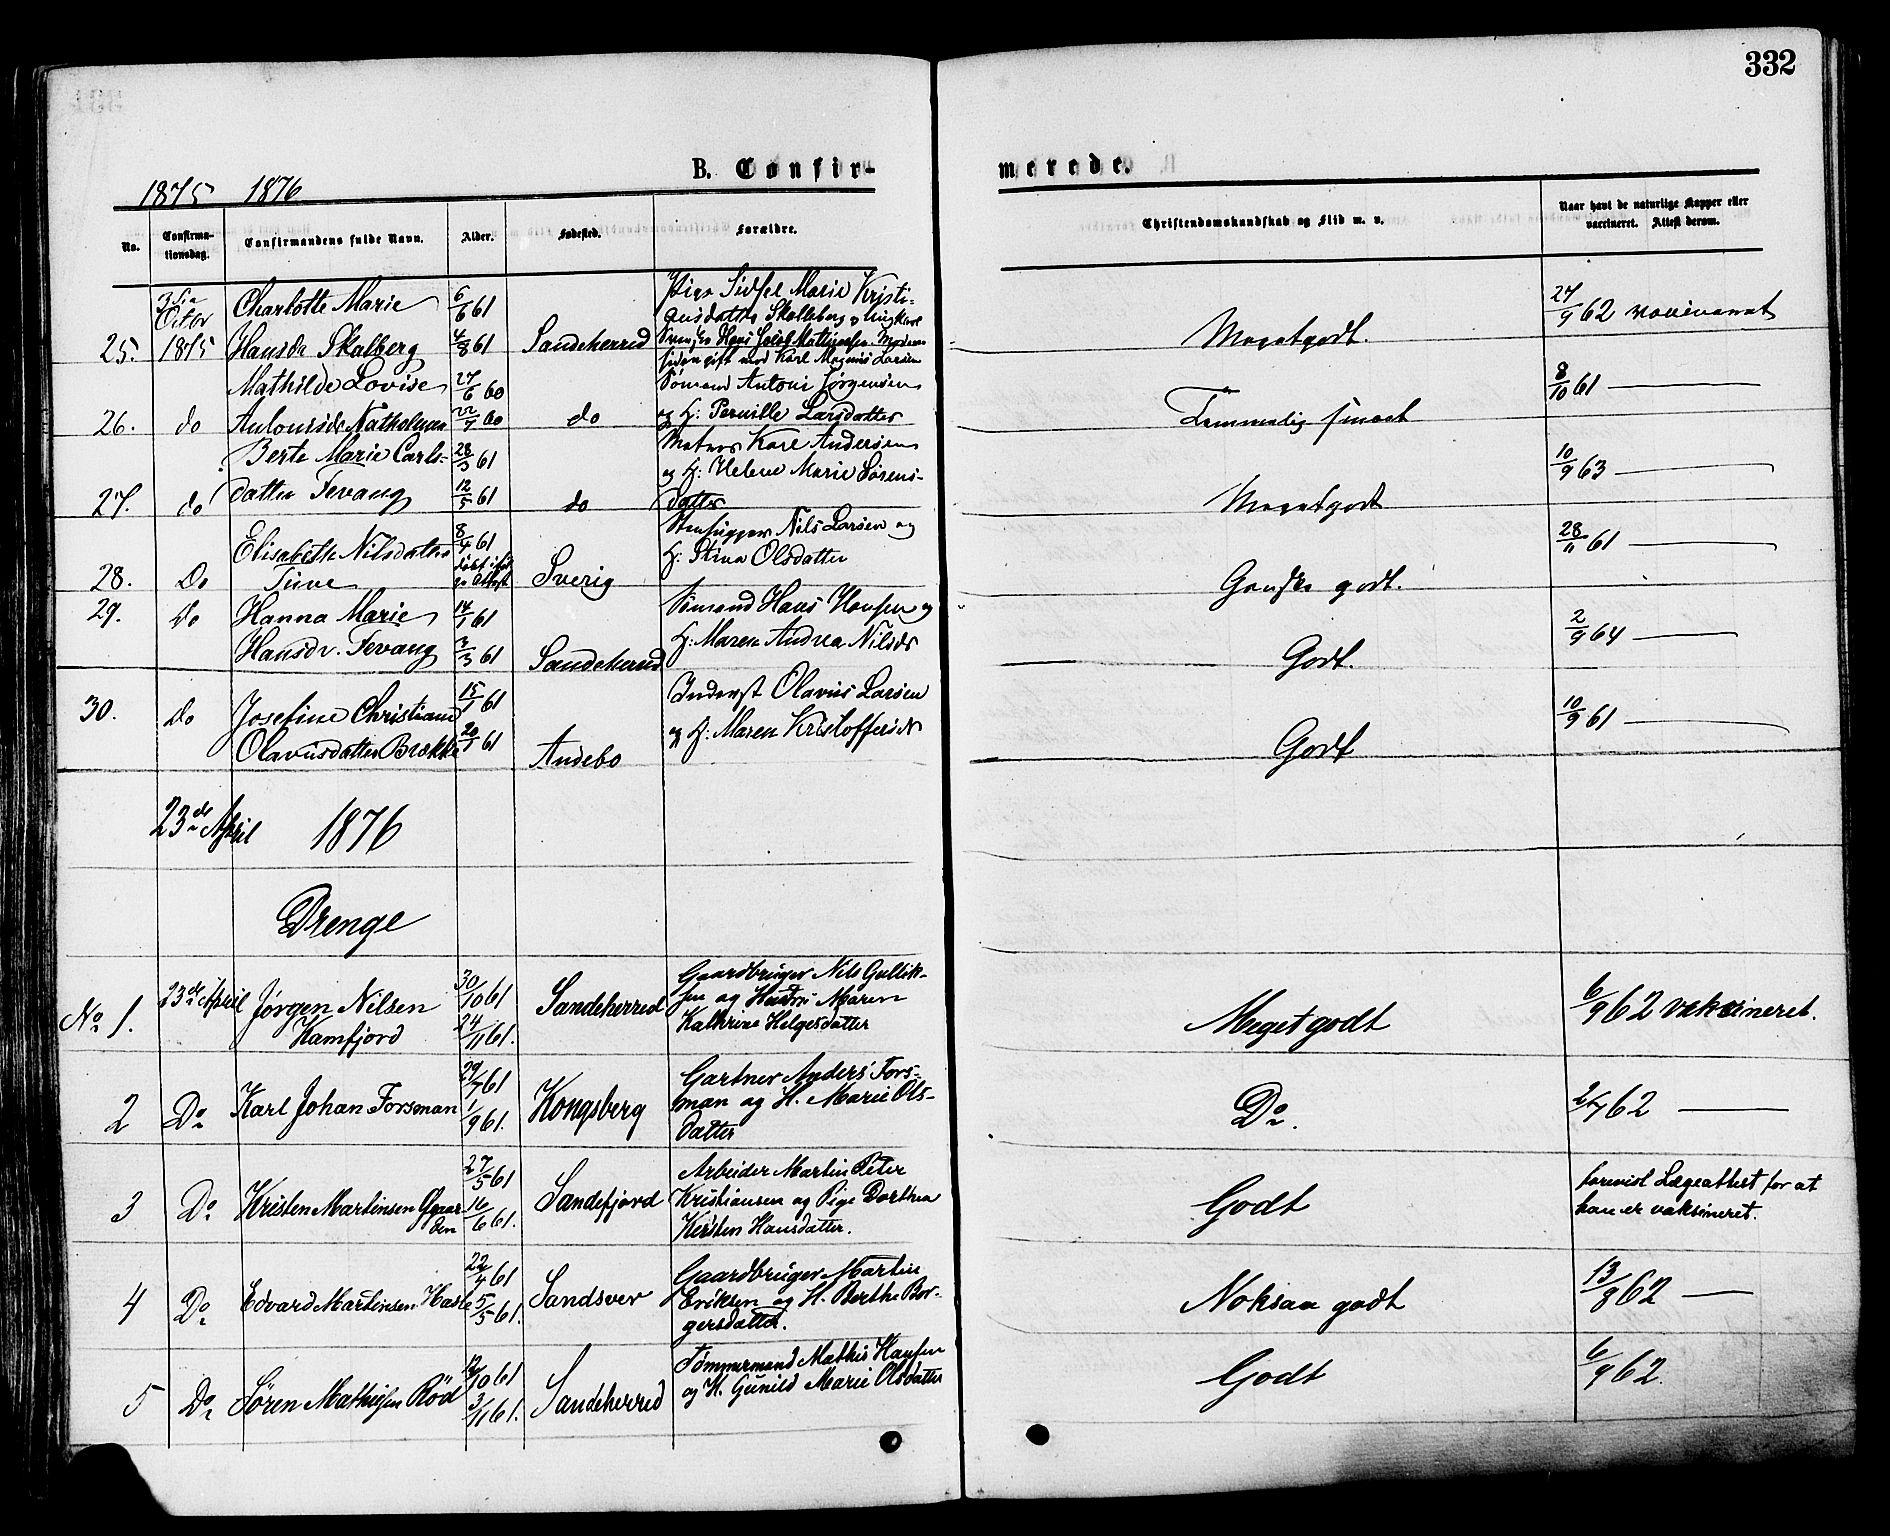 332
B. Confir-
merede.
1875 1876
No.
Confirma-
tionsdag.
Confirmandens fulde Navn.
Alder.
Fødested.
Forældre.
Christendomskundskab og Flid m. v.
Naar havt de naturlige Kopper eller
vaccineret. Attest derom.
25.
3die
Octbr
1875
Charlotte Marie
Hansdr Skalberg
6/6 61
4/8 61
Sandeherred
Pige Sidsel Marie Kristi-
ansdatter Skalleberg og Ungkarl
Hans Jakob Mathiesen. Moderen
siden gift med Karl Magnus Larsen
Megetgodt.
27/9 62 vaccineret
26.
do
Mathilde Lovise
Antonisdr Natholmen
27/6 60
22/7 60
do
Sømand Antoni Jørgensen
og H: Pernille Larsdatter
Temmelig smaat
8/10 61 ———
27.
do
Berte Marie Carls-
datter Fevang
28/3 61
12/5 61
do
Matros Karl Andersen
og H: Helene Marie Sørens-
datter
Megetgodt
10/9 63 ———
28.
Do
Elisabeth Nilsdatter
Tuve
8/4 61
Sverig
Stenhugger Nils Larsen og
H: Stina Olsdatter
Ganske godt.
28/11 61 ———
29.
do
Hanna Marie
Hansdr. Fevang
14/1 61
3/3 61
Sandeherred
Sømand Hans Hansen og
H: Maren Andrea Nilsdr
Godt.
2/9 64 ———
30.
do
Josefine Christiane
Olavusdatter Brække
15/1 61
20/1 61
Andebo
Inderst Olavus Larsen
og H: Maren Kristoffersdr
Godt
10/9 61 ———
23de April 1876
Drenge
No 1.
23de April
Jørgen Nilsen
Kamfjord
30/10 61
24/11 61.
Sandeherred
Gaardbruger Nils Gullik-
sen og Hustru Maren
Kathrine Helgesdatter
Megetgodt
6/9 62 vaksineret.
2
Do
Karl Johan Forsman
29/7 61
1/9 61.
Kongsberg
Gartner Anders Fors-
man og H. Marie Ols-
datter
Do.
2/7 62 ———
3
Do
Kristen Martinsen
27/5 61
16/6 61.
Sandefjord
Arbeider Martin Peter
Kristiansen og Pige Dorthea
Kirsten Hansdatter.
Godt
forevist Lægeattest for at
han er vaksineret.
4
Do
Edvard Martinsen Hasle
22/4 61
5/5 61.
Sandsver
Gaardbruger Martin
Eriksen og H. Berthe Bor-
gersdatter.
Noksaa godt
13/8 62 ———
5
Do
Søren Mathisen Röd
12/10 61
3/11 61.
Sandeherred
Tømmermand Mathis Hansen
og H. Gunild Marie Olsdatter
Godt
6/9 62.